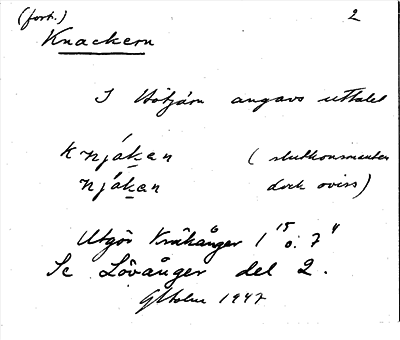 (forts.) 2
Knackern
I Hötjärn angavs uttalet
knjákan (slutkonsonanten
njákan dock oviss)
Utgör Kråkånger 1¹⁵ o. 7⁴
Se Lövånger del 2.
1947